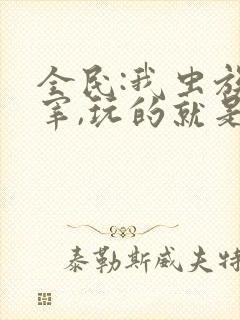 全民:我虫族
宰,玩的就是
泰勒斯威夫特